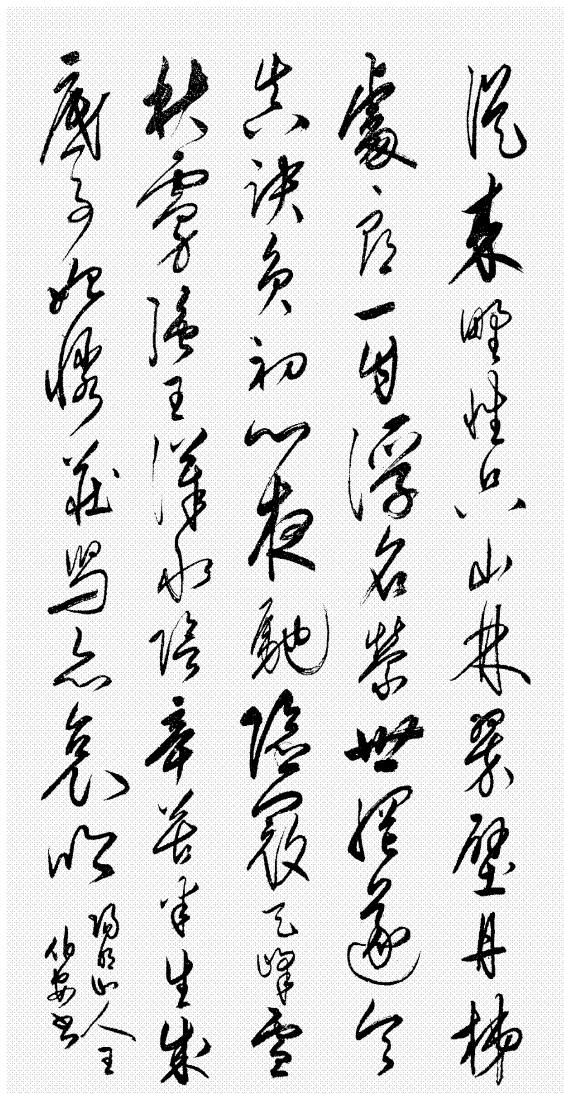 從來野性只山林翠壁丹梯
處々尋一自浮名縈世網遂令
真訣負初心夜馳險寇天峰雪
秋虜強王漢水陰辛苦半生成
底事始憐莊舄亦哀吟
陽明山人王
伯安書